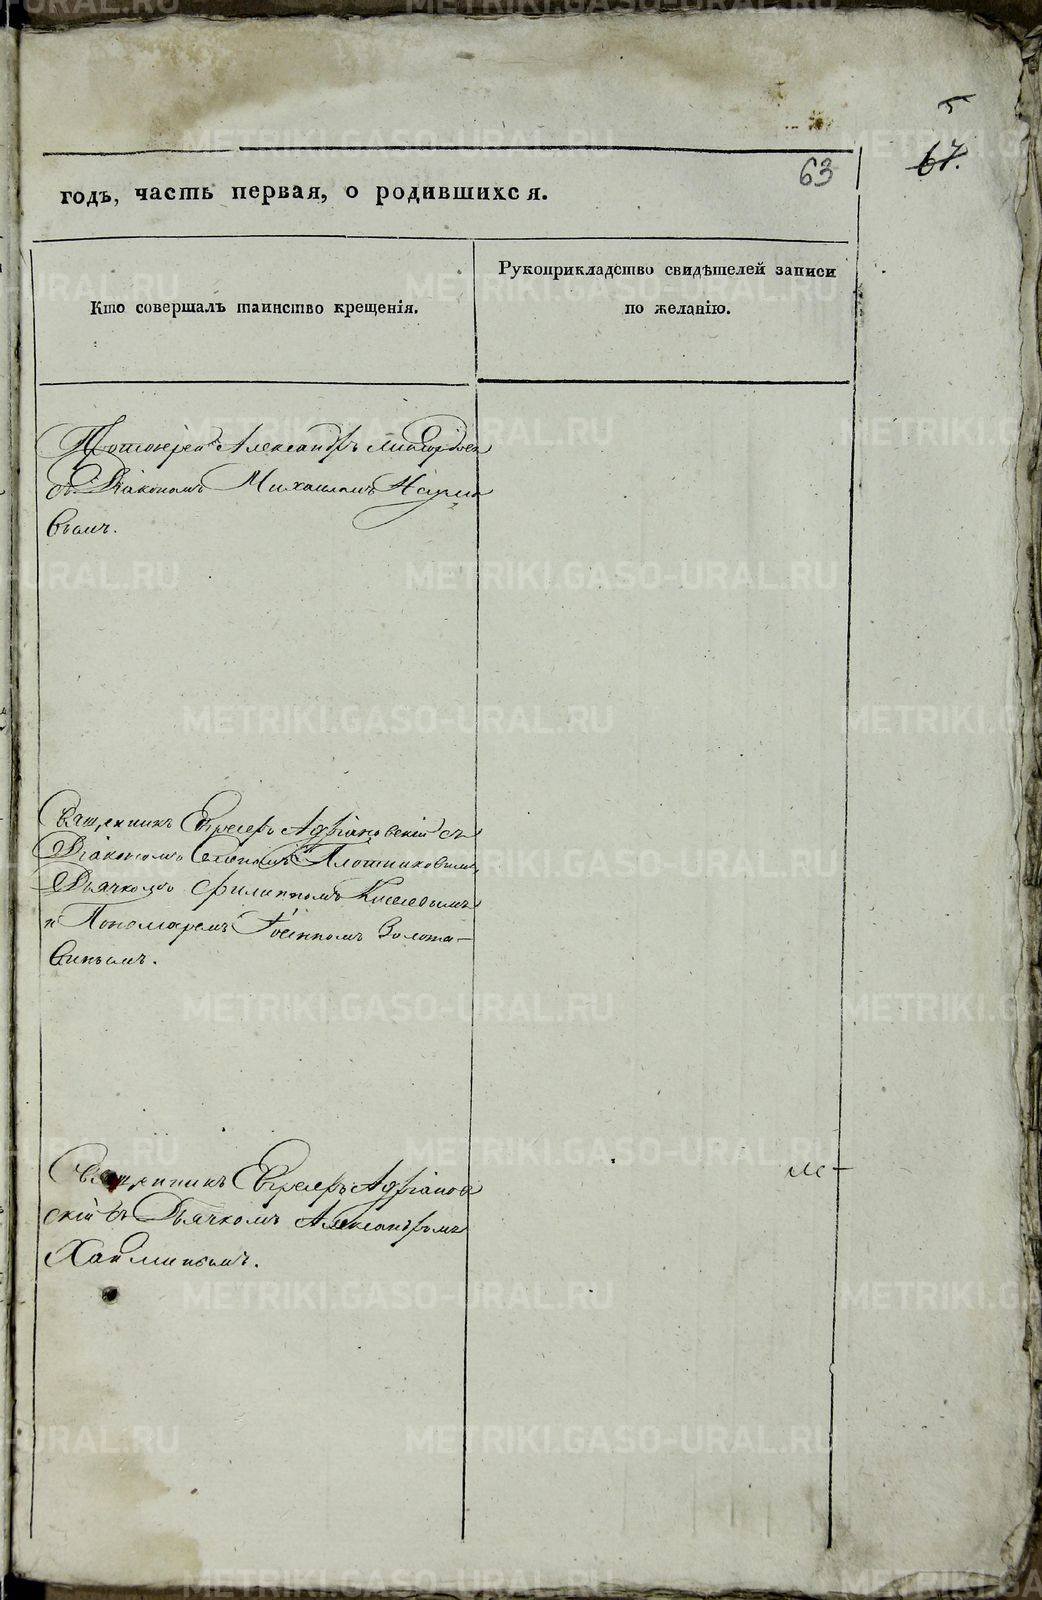 5
67.
63
годъ, часть первая, о родившихся.
Кто совершалъ таинство крещенія.
Рукоприкладство свидѣтелей записи
по желанію.
Протоіерей Александръ
съ Діакономъ Михаиломъ Наумо
вымъ.
Священникъ Адріановскій съ
Діакономъ Плотниковымъ,
Дьячкомъ Филиппомъ Киселевымъ
и Пономаремъ Золота-
винымъ.
Священникъ Адріанов
скій съ Дьячкомъ Александромъ
METRIKI.GASO-URAL.RU